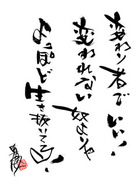 変わり者でいい!
変われない
奴よりや
よっぽど生き抜いてる!